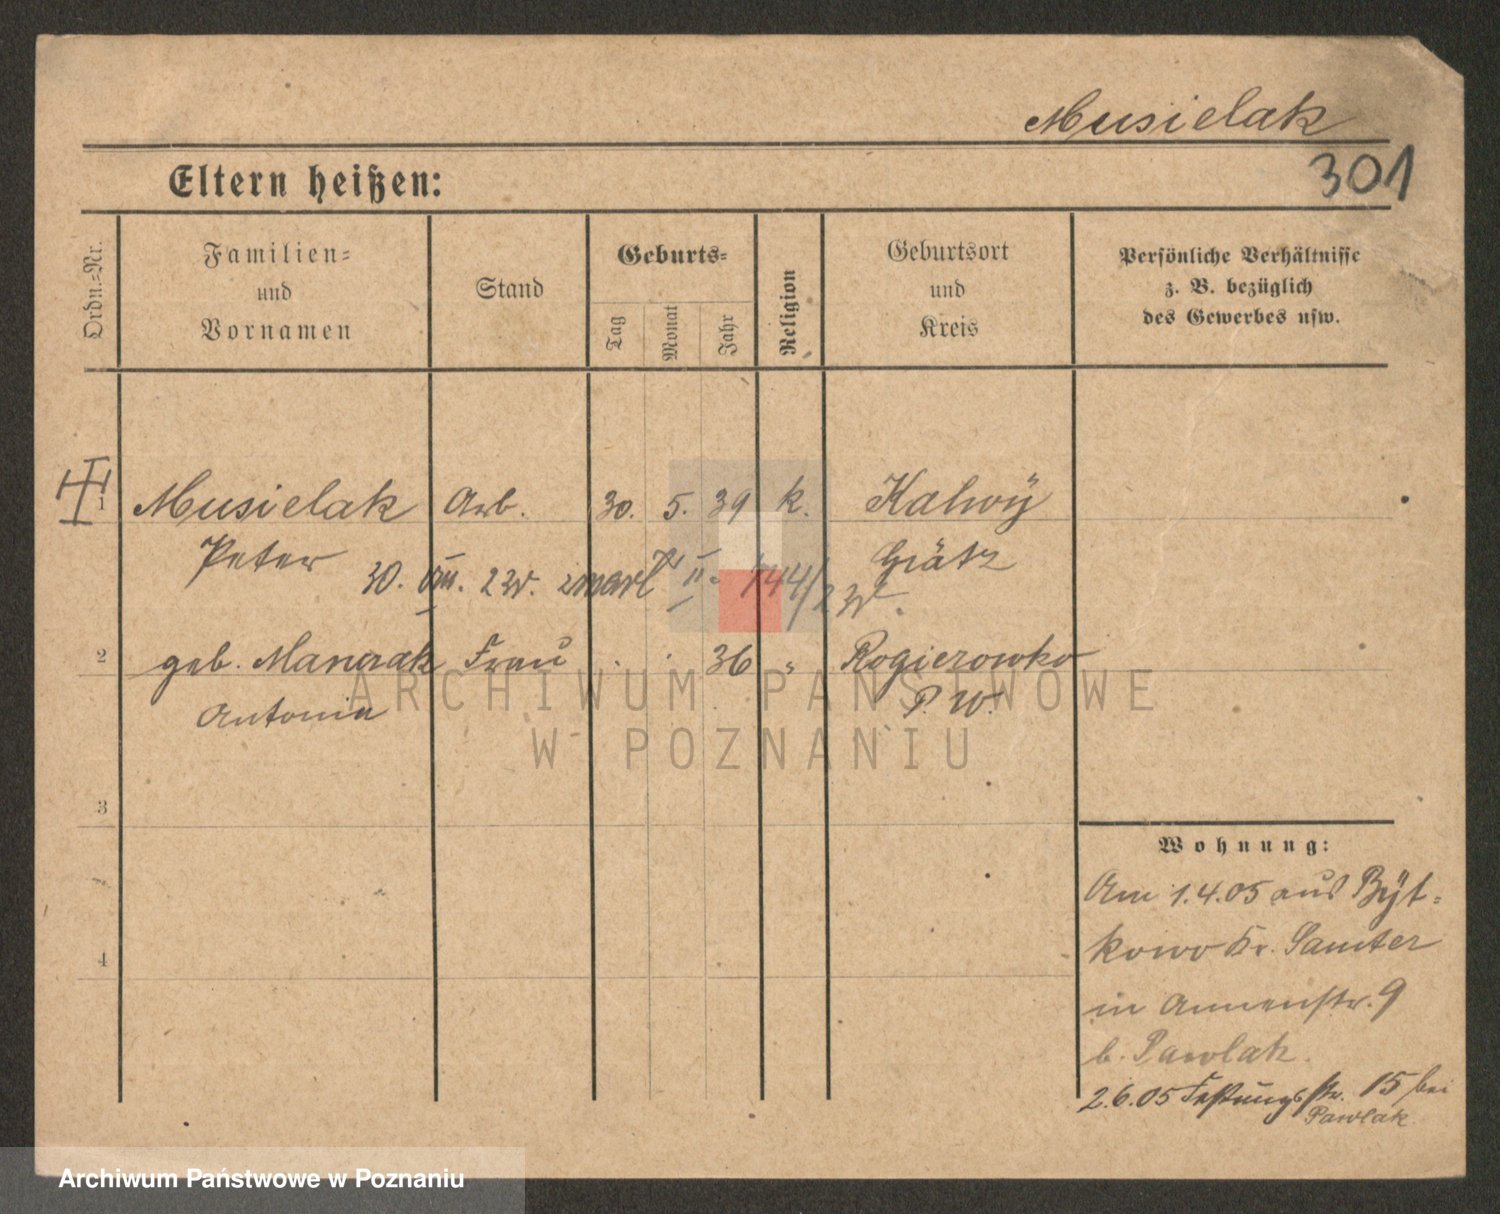 Musielak
301
Eltern heißen:
Ordn.-Nr.
Familien-
und
Vornamen
Stand
Geburts-
Tag
Monat
Jahr
Religion
Geburtsort
und
Kreis
Persönliche Verhältnisse
z. B. bezüglich
des Gewerbes usw.
1 Musielak Arb. 30. 5. 39 k. Kalwÿ
Peter Grätz
30. 2 w. zmarł II 144/2 w.
2 geb. Frau 36 " Rogierowko
Antonia P. W.
ARCHIWUM PAŃSTWOWE
W POZNANIU
3
4
Wohnung:
Am 1.4.05 aus Bÿt-
kowo Kr. Samter
in Annenstr. 9
b. Pawlak.
2.6.05 Festungsstr. 15 bei
Pawlak.
Archiwum Państwowe w Poznaniu